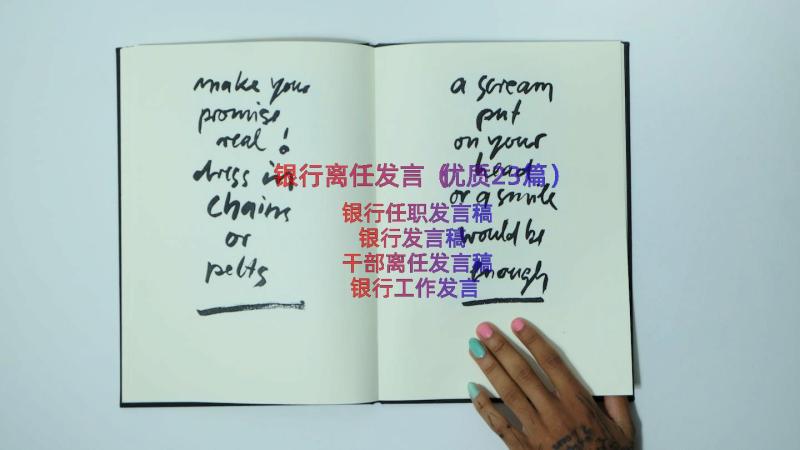 make your
promise
real!
dress in
chains
or
pelts
a scream
put
on your
head
or a smile
would be
enough
银行离任发言（优质23篇）
银行任职发言稿
银行发言稿
干部离任发言稿
银行工作发言